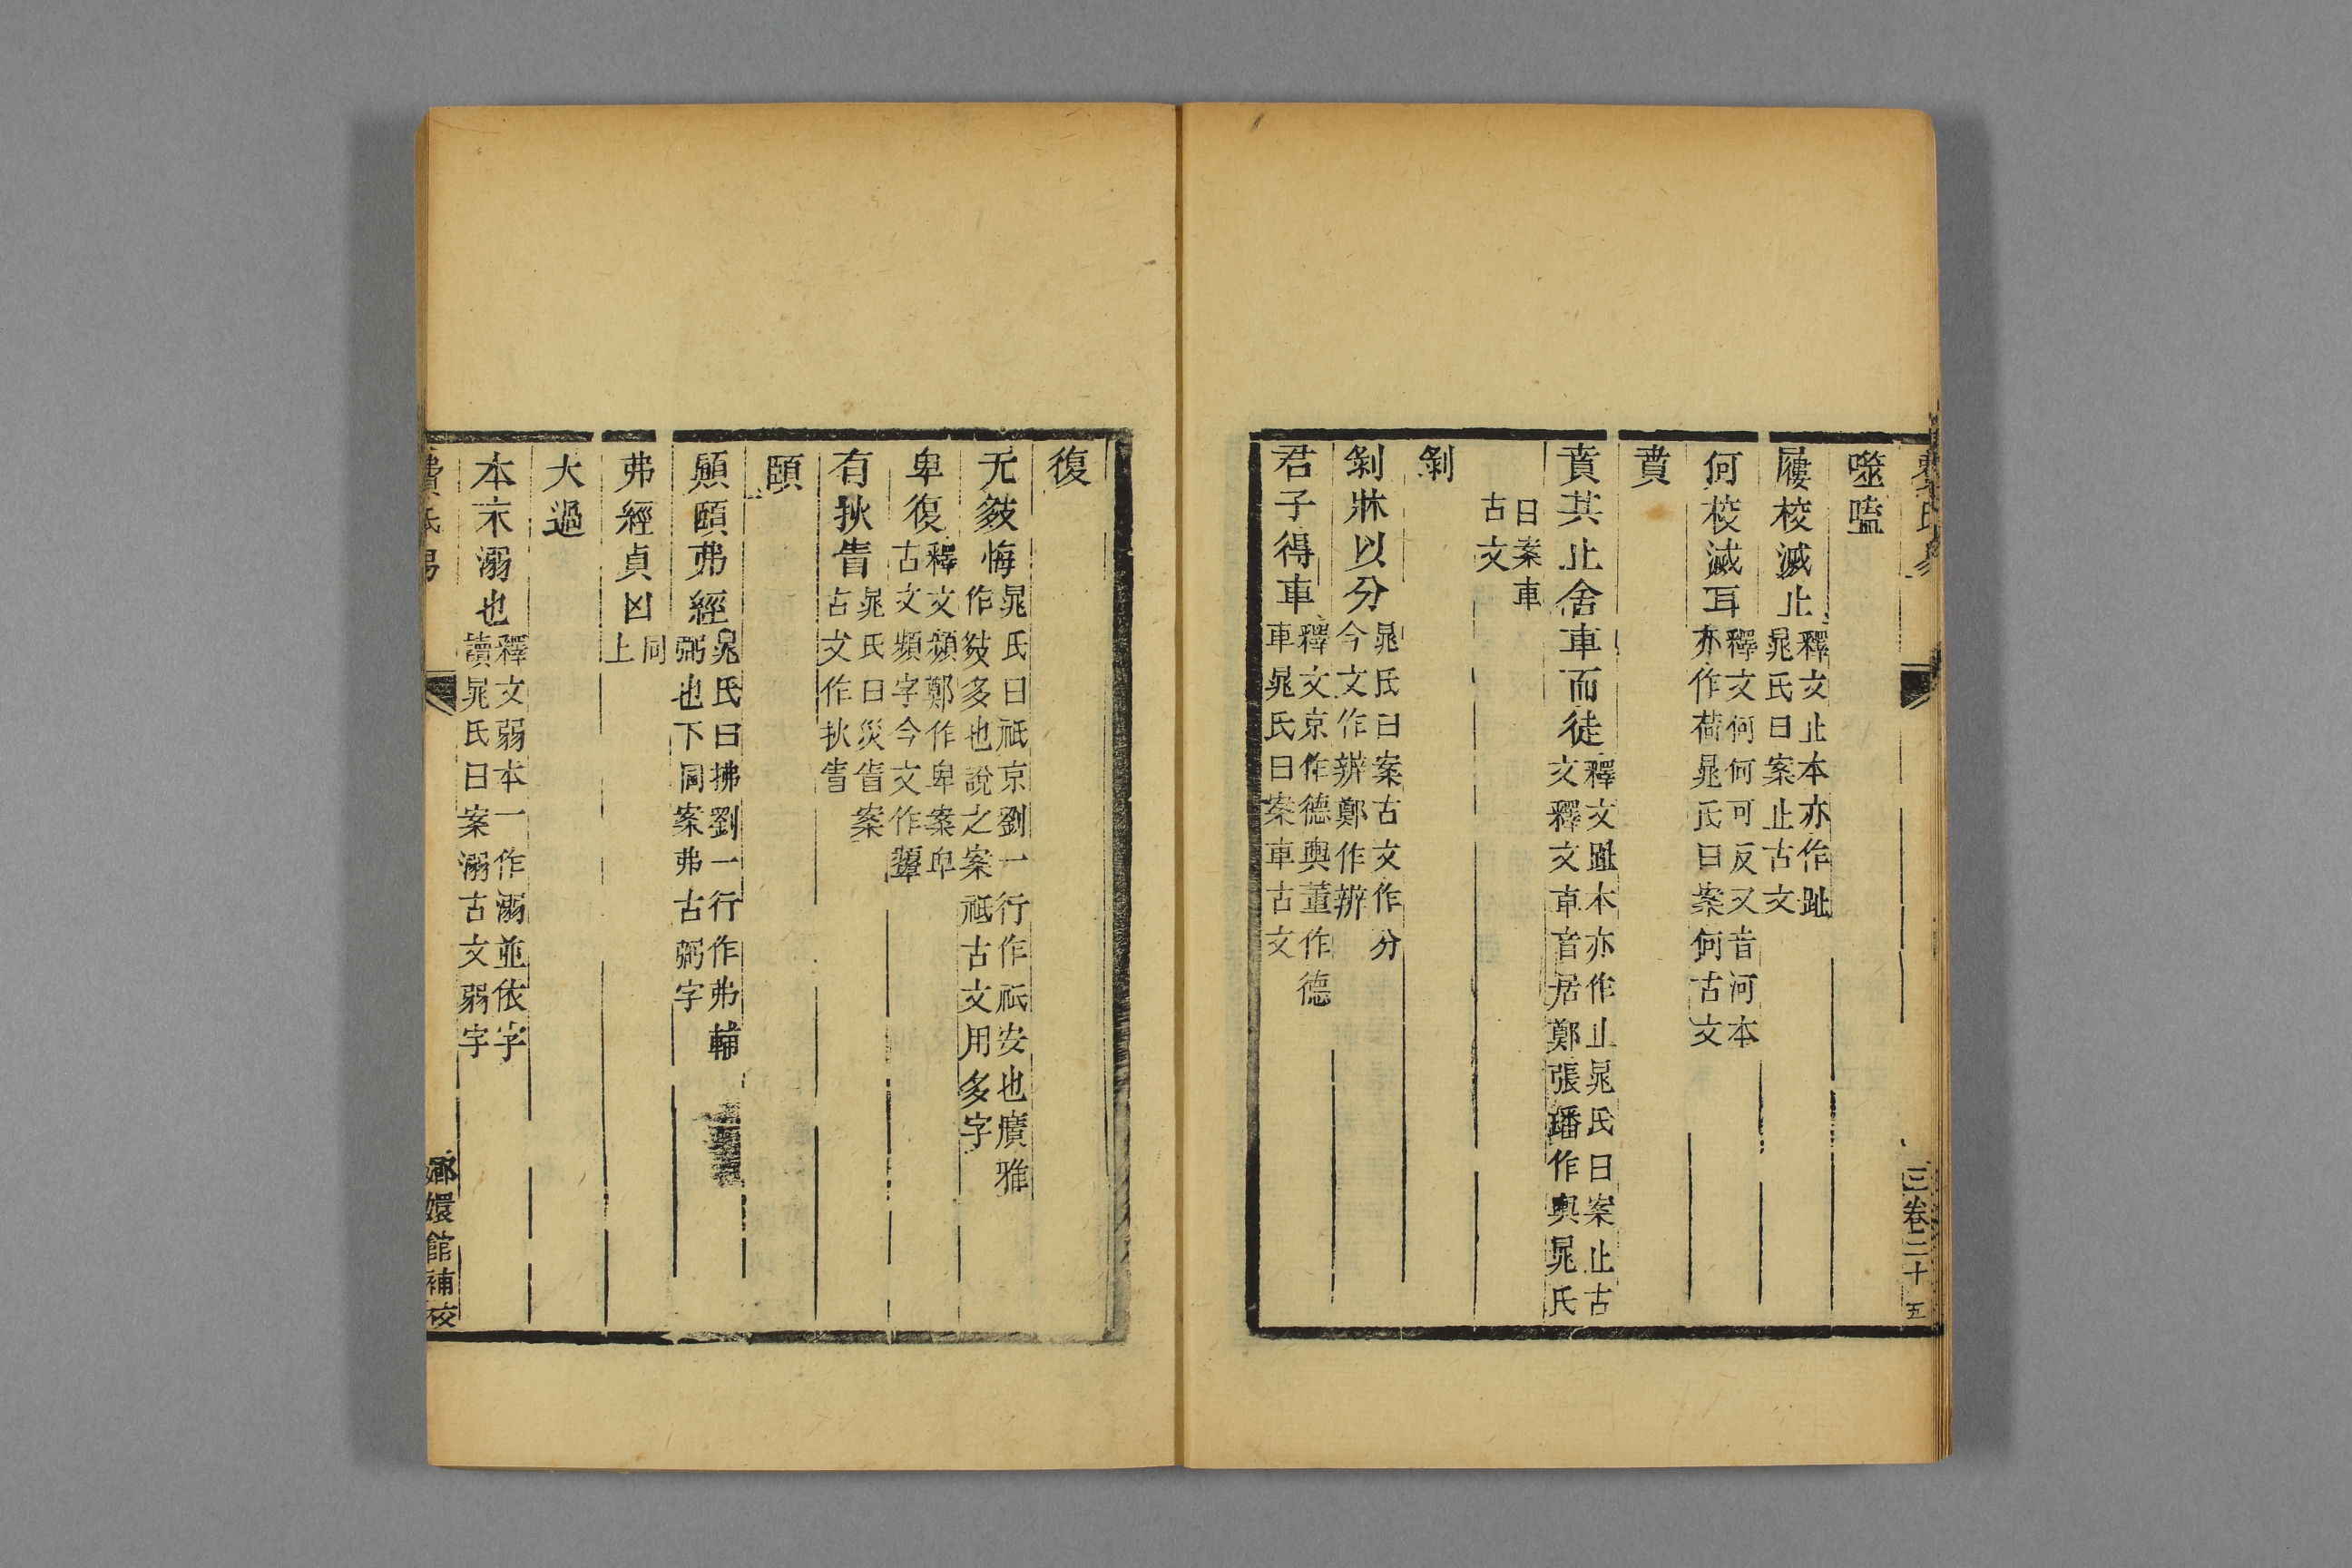 三 卷二十五
噬嗑
屨校滅止釋文止本亦作趾
晁氏曰案止古文
何校滅耳釋文何何可反又音河本
亦作荷晁氏曰案何古文
賁
賁其止舍車而徒釋文趾本亦作止晁氏曰案止古
文釋文車音居鄭張璠作輿晁氏
曰案車
古文
剝
剝牀以分晁氏曰案古文作分
今文作辨鄭作辨
君子得車釋文京作德輿董作德
車晁氏曰案車古文
復
无敍悔晁氏曰祗京劉一行作祇安也廣雅
作敍多也說之案祗古文用多字
卑復釋文頻鄭作卑案卑
古文頻字今文作顰
有狄眚晁氏曰災眚案
古文作狄眚
頤
顛頤弗經晁氏曰拂劉一行作弗輔
弼也下同案弗古弼字
弗經貞凶同
上
大過
本末溺也釋文弱本一作溺並依字
讀晁氏曰案溺古文弱字
費氏易
嫏嬛館補校